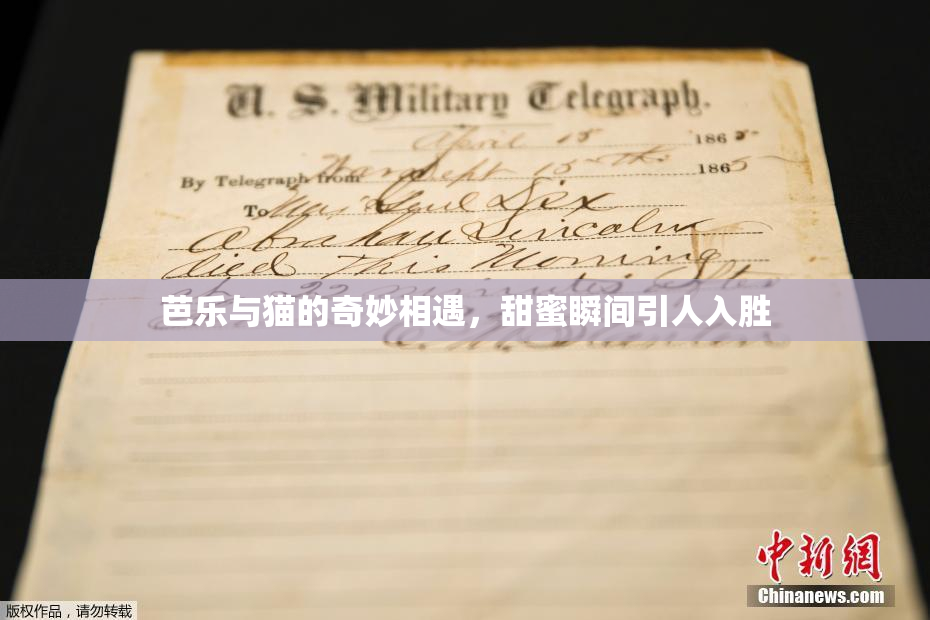 U. S. Military Telegraph.
April 15 1865
By Telegraph from War Dept 15th 1865
To Maj Genl Dix
Abraham Lincoln
died This Morning
at 22 minutes after
芭乐与猫的奇妙相遇，甜蜜瞬间引人入胜
E. M. Stanton
中新网
Chinanews.com
版权作品，请勿转载